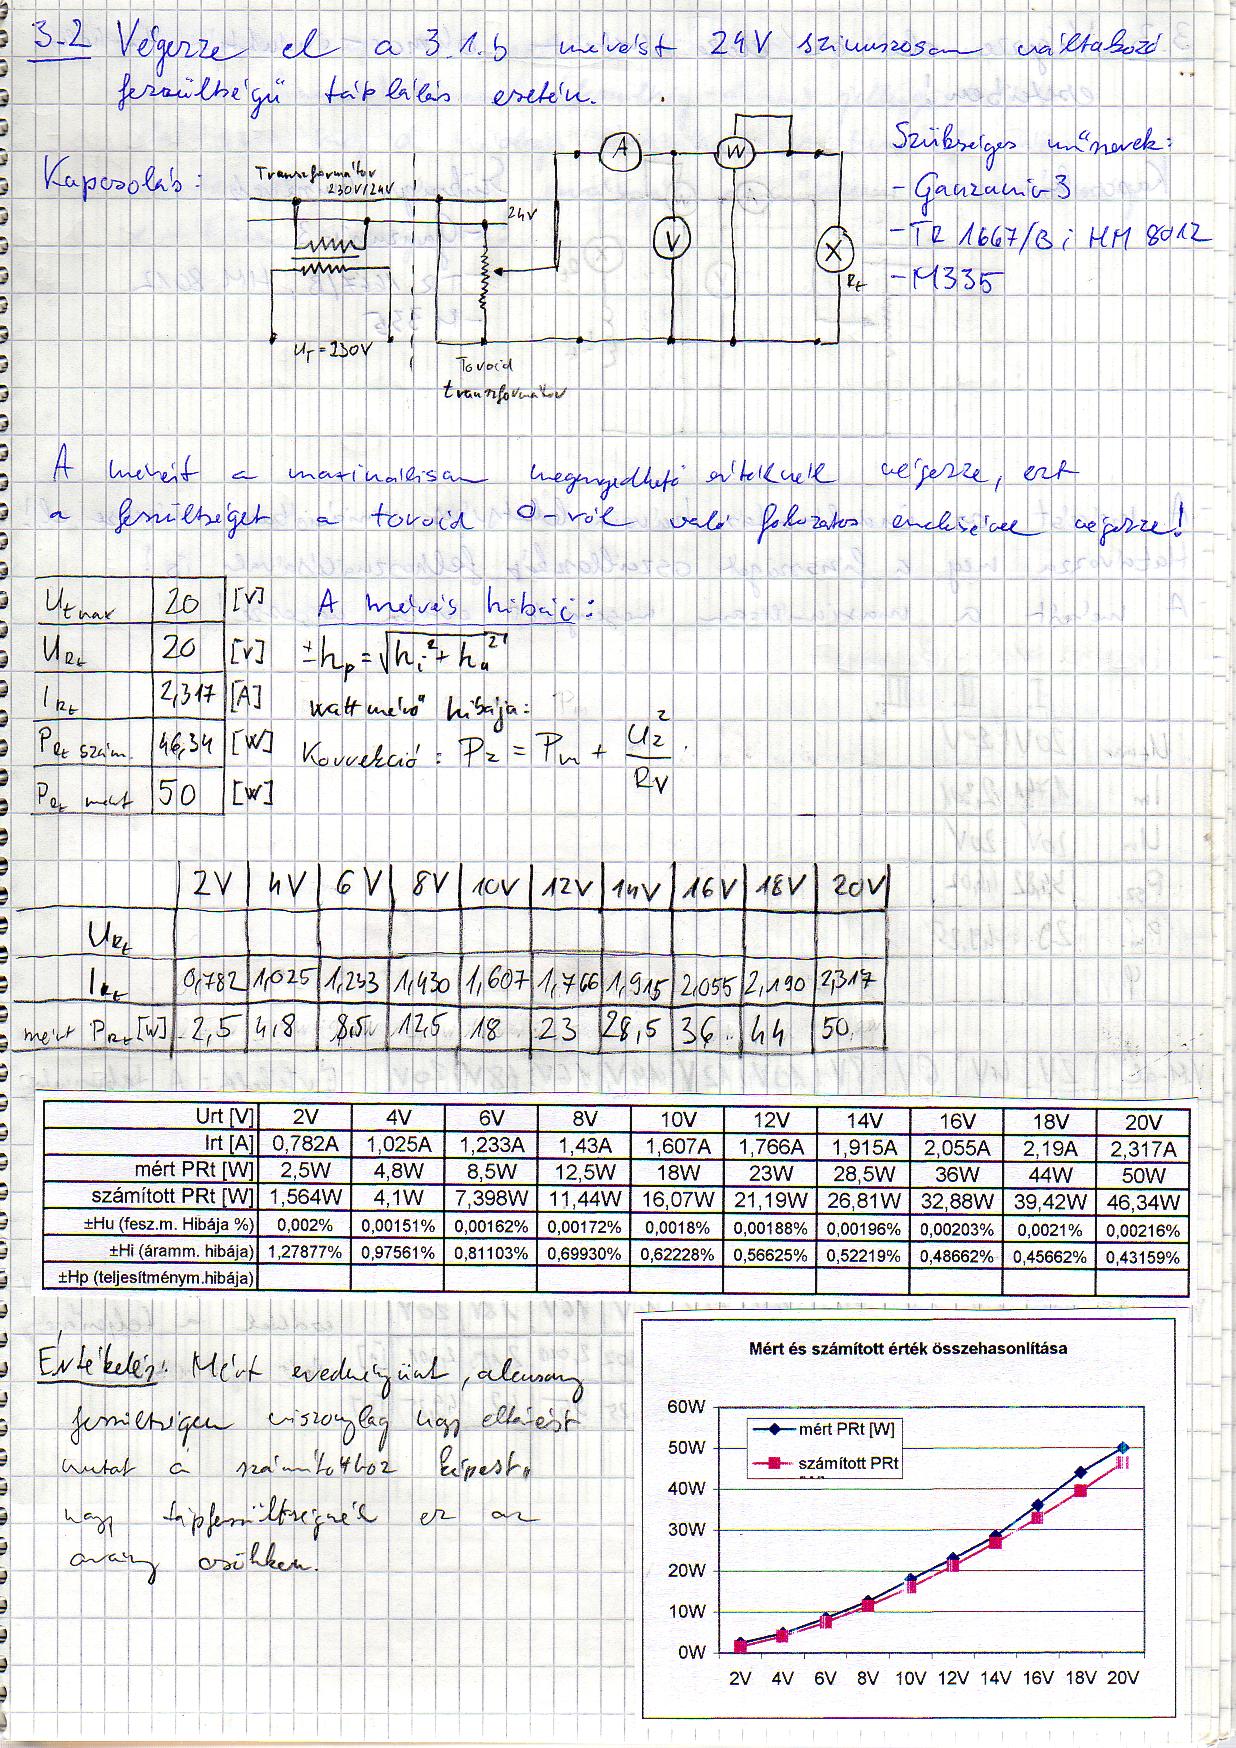 3.2 Végezze el a 3.1.b mérést 24V szinuszosan váltakozó
feszültségű táplálás esetén.
Kapcsolás:
Transzformátor
230V/24V
24V
A
W
V
X
Rt
UT=230V
Toroid
transzformátor
Szükséges műszerek:
- Ganzuniv-3
- TR 1667/B; HM 8012
- M335
A mérést a maximálisan megengedhető értéknél végezze, ezt
a feszültséget a toroid 0-ról való fokozatos emelésével végezze!
Ut max 20 [V]
URt 20 [V]
IRt 2,317 [A]
PRt szám. 46,34 [W]
PRt mért 50 [W]
A mérés hibái:
±hp = √hi² + hu²
wattmérő hibája:
Korrekció: Pz = Pm + Uz²/RV
2V 4V 6V 8V 10V 12V 14V 16V 18V 20V
URt
IRt 0,782 1,025 1,233 1,430 1,607 1,766 1,915 2,055 2,190 2,317
mért PRt [W] 2,5 4,8 8,5 12,5 18 23 28,5 36 44 50
Urt [V] 2V 4V 6V 8V 10V 12V 14V 16V 18V 20V
Irt [A] 0,782A 1,025A 1,233A 1,43A 1,607A 1,766A 1,915A 2,055A 2,19A 2,317A
mért PRt [W] 2,5W 4,8W 8,5W 12,5W 18W 23W 28,5W 36W 44W 50W
számított PRt [W] 1,564W 4,1W 7,398W 11,44W 16,07W 21,19W 26,81W 32,88W 39,42W 46,34W
±Hu (fesz.m. Hibája %) 0,002% 0,00151% 0,00162% 0,00172% 0,0018% 0,00188% 0,00196% 0,00203% 0,0021% 0,00216%
±Hi (áramm. hibája) 1,27877% 0,97561% 0,81103% 0,69930% 0,62228% 0,56625% 0,52219% 0,48662% 0,45662% 0,43159%
±Hp (teljesítménym.hibája)
Értékelés: Mért eredményünk, alacsony
feszültségen viszonylag nagy eltérést
mutat a számítotthoz képest,
nagy tápfeszültségnél ez az
arány csökken.
Mért és számított érték összehasonlítása
mért PRt [W]
számított PRt
60W
50W
40W
30W
20W
10W
0W
2V 4V 6V 8V 10V 12V 14V 16V 18V 20V